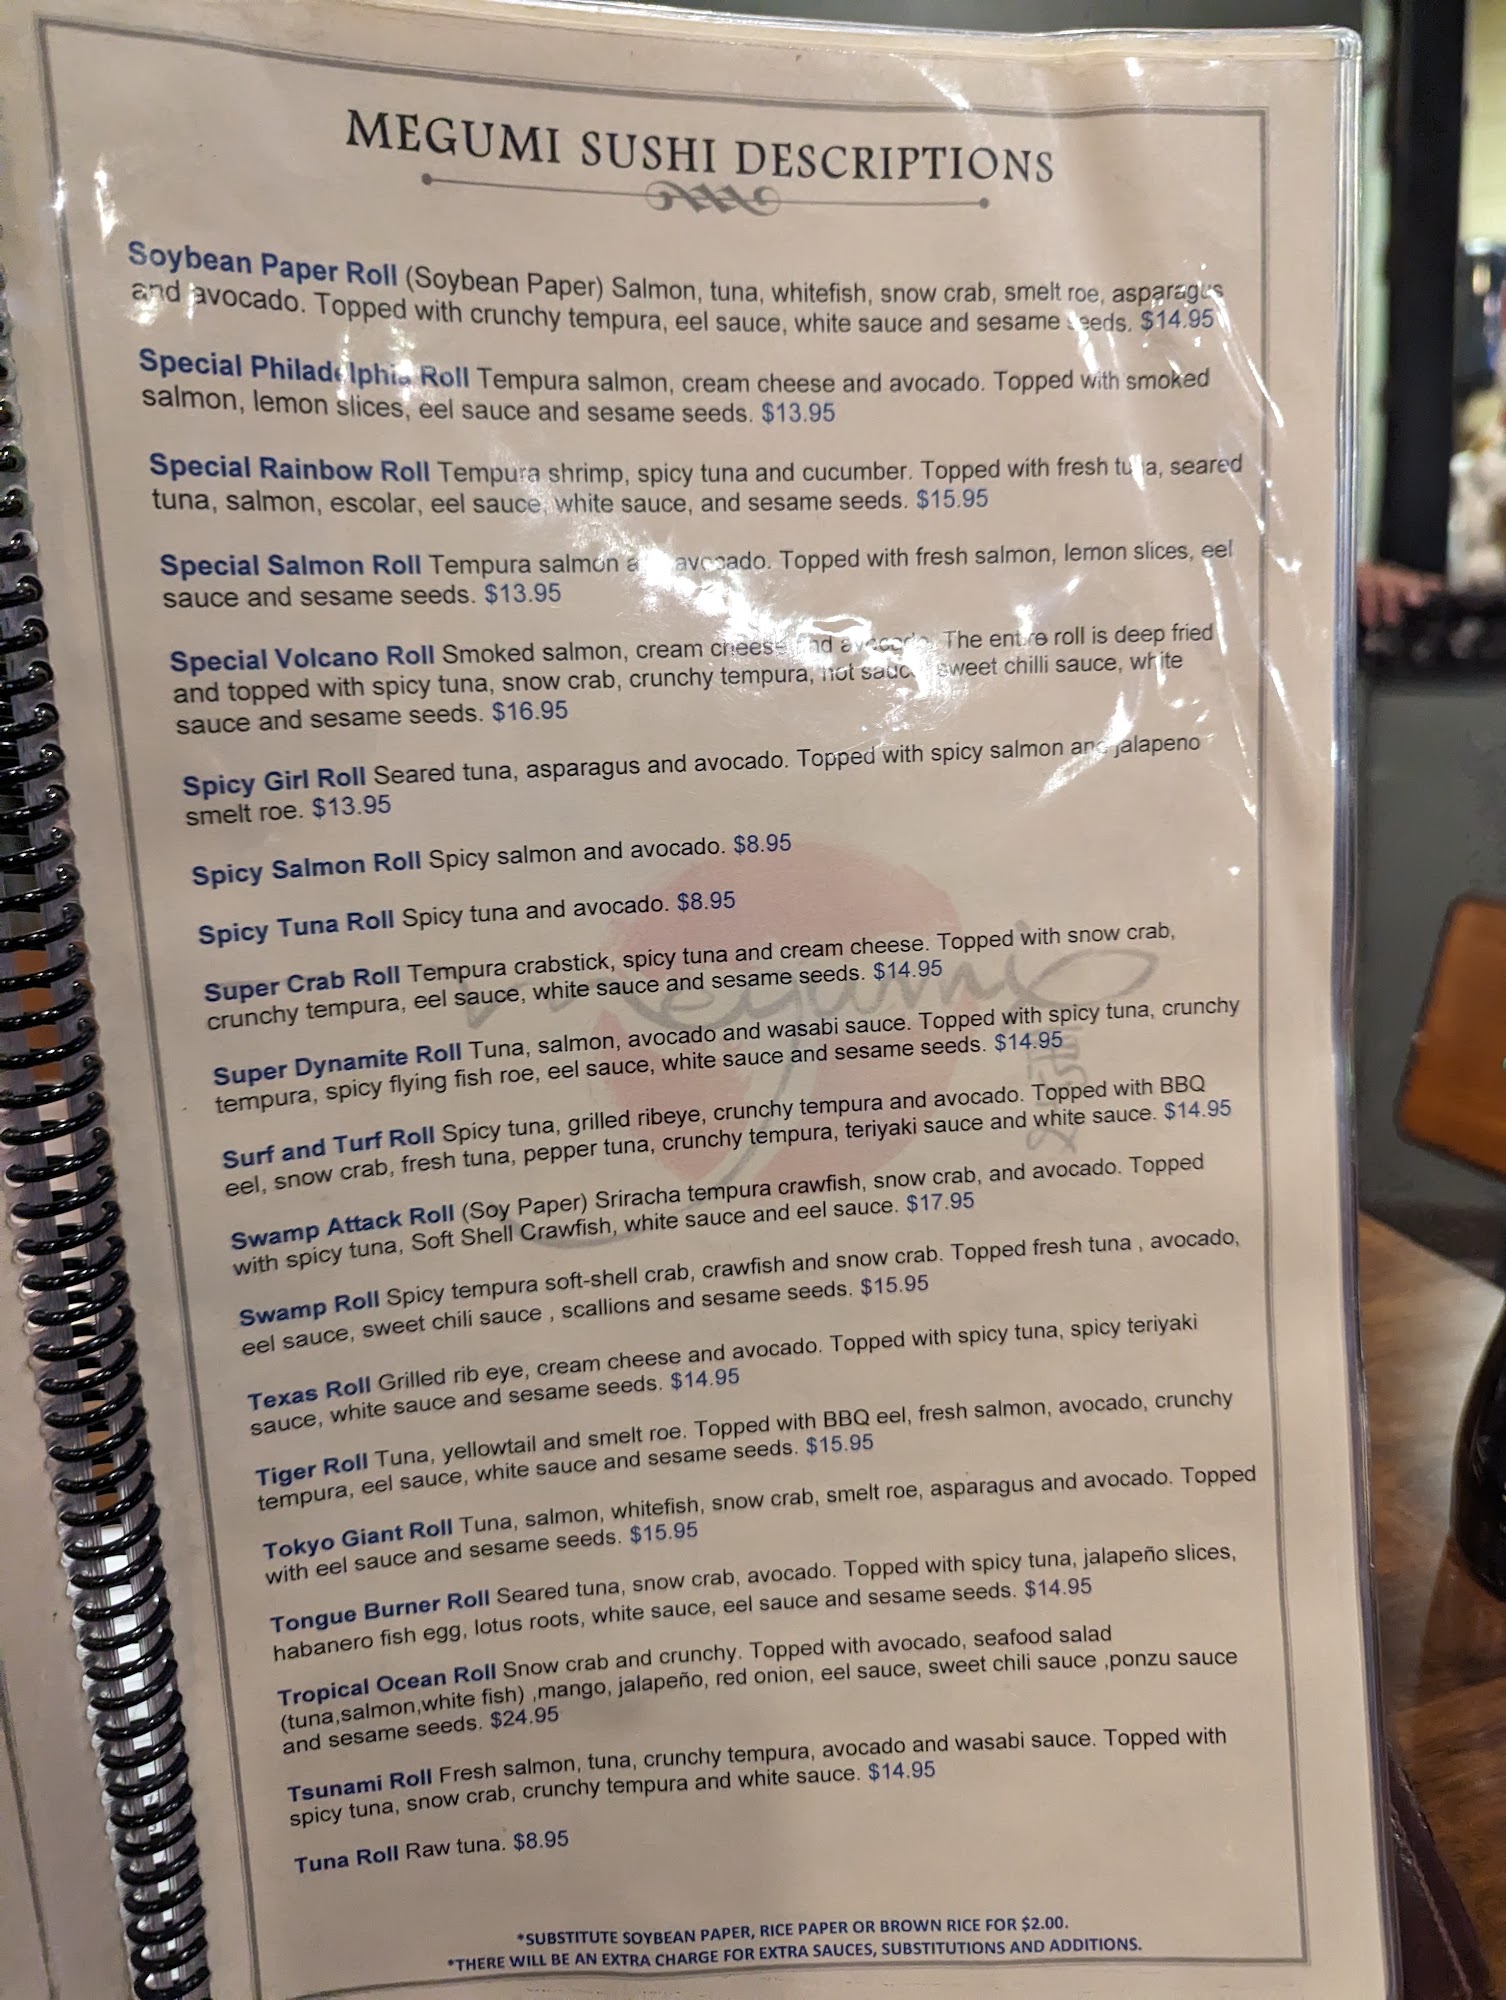 MEGUMI SUSHI DESCRIPTIONS
Soybean Paper Roll (Soybean Paper) Salmon, tuna, whitefish, snow crab, smelt roe, asparagus
and avocado. Topped with crunchy tempura, eel sauce, white sauce and sesame seeds. $14.95
Special Philadelphia Roll Tempura salmon, cream cheese and avocado. Topped with smoked
salmon, lemon slices, eel sauce and sesame seeds. $13.95
Special Rainbow Roll Tempura shrimp, spicy tuna and cucumber. Topped with fresh tuna, seared
tuna, salmon, escolar, eel sauce, white sauce, and sesame seeds. $15.95
Special Salmon Roll Tempura salmon avocado. Topped with fresh salmon, lemon slices, eel
sauce and sesame seeds. $13.95
Special Volcano Roll Smoked salmon, cream cheese and avocado. The entire roll is deep fried
and topped with spicy tuna, snow crab, crunchy tempura, hot sauce, sweet chilli sauce, white
sauce and sesame seeds. $16.95
Spicy Girl Roll Seared tuna, asparagus and avocado. Topped with spicy salmon and jalapeno
smelt roe. $13.95
Spicy Salmon Roll Spicy salmon and avocado. $8.95
Spicy Tuna Roll Spicy tuna and avocado. $8.95
Super Crab Roll Tempura crabstick, spicy tuna and cream cheese. Topped with snow crab,
crunchy tempura, eel sauce, white sauce and sesame seeds. $14.95
Super Dynamite Roll Tuna, salmon, avocado and wasabi sauce. Topped with spicy tuna, crunchy
tempura, spicy flying fish roe, eel sauce, white sauce and sesame seeds. $14.95
Surf and Turf Roll Spicy tuna, grilled ribeye, crunchy tempura and avocado. Topped with BBQ
eel, snow crab, fresh tuna, pepper tuna, crunchy tempura, teriyaki sauce and white sauce. $14.95
Swamp Attack Roll (Soy Paper) Sriracha tempura crawfish, snow crab, and avocado. Topped
with spicy tuna, Soft Shell Crawfish, white sauce and eel sauce. $17.95
Swamp Roll Spicy tempura soft-shell crab, crawfish and snow crab. Topped fresh tuna , avocado,
eel sauce, sweet chili sauce , scallions and sesame seeds. $15.95
Texas Roll Grilled rib eye, cream cheese and avocado. Topped with spicy tuna, spicy teriyaki
sauce, white sauce and sesame seeds. $14.95
Tiger Roll Tuna, yellowtail and smelt roe. Topped with BBQ eel, fresh salmon, avocado, crunchy
tempura, eel sauce, white sauce and sesame seeds. $15.95
Tokyo Giant Roll Tuna, salmon, whitefish, snow crab, smelt roe, asparagus and avocado. Topped
with eel sauce and sesame seeds. $15.95
Tongue Burner Roll Seared tuna, snow crab, avocado. Topped with spicy tuna, jalapeño slices,
habanero fish egg, lotus roots, white sauce, eel sauce and sesame seeds. $14.95
Tropical Ocean Roll Snow crab and crunchy. Topped with avocado, seafood salad
(tuna,salmon,white fish) ,mango, jalapeño, red onion, eel sauce, sweet chili sauce ,ponzu sauce
and sesame seeds. $24.95
Tsunami Roll Fresh salmon, tuna, crunchy tempura, avocado and wasabi sauce. Topped with
spicy tuna, snow crab, crunchy tempura and white sauce. $14.95
Tuna Roll Raw tuna. $8.95
*SUBSTITUTE SOYBEAN PAPER, RICE PAPER OR BROWN RICE FOR $2.00.
*THERE WILL BE AN EXTRA CHARGE FOR EXTRA SAUCES, SUBSTITUTIONS AND ADDITIONS.